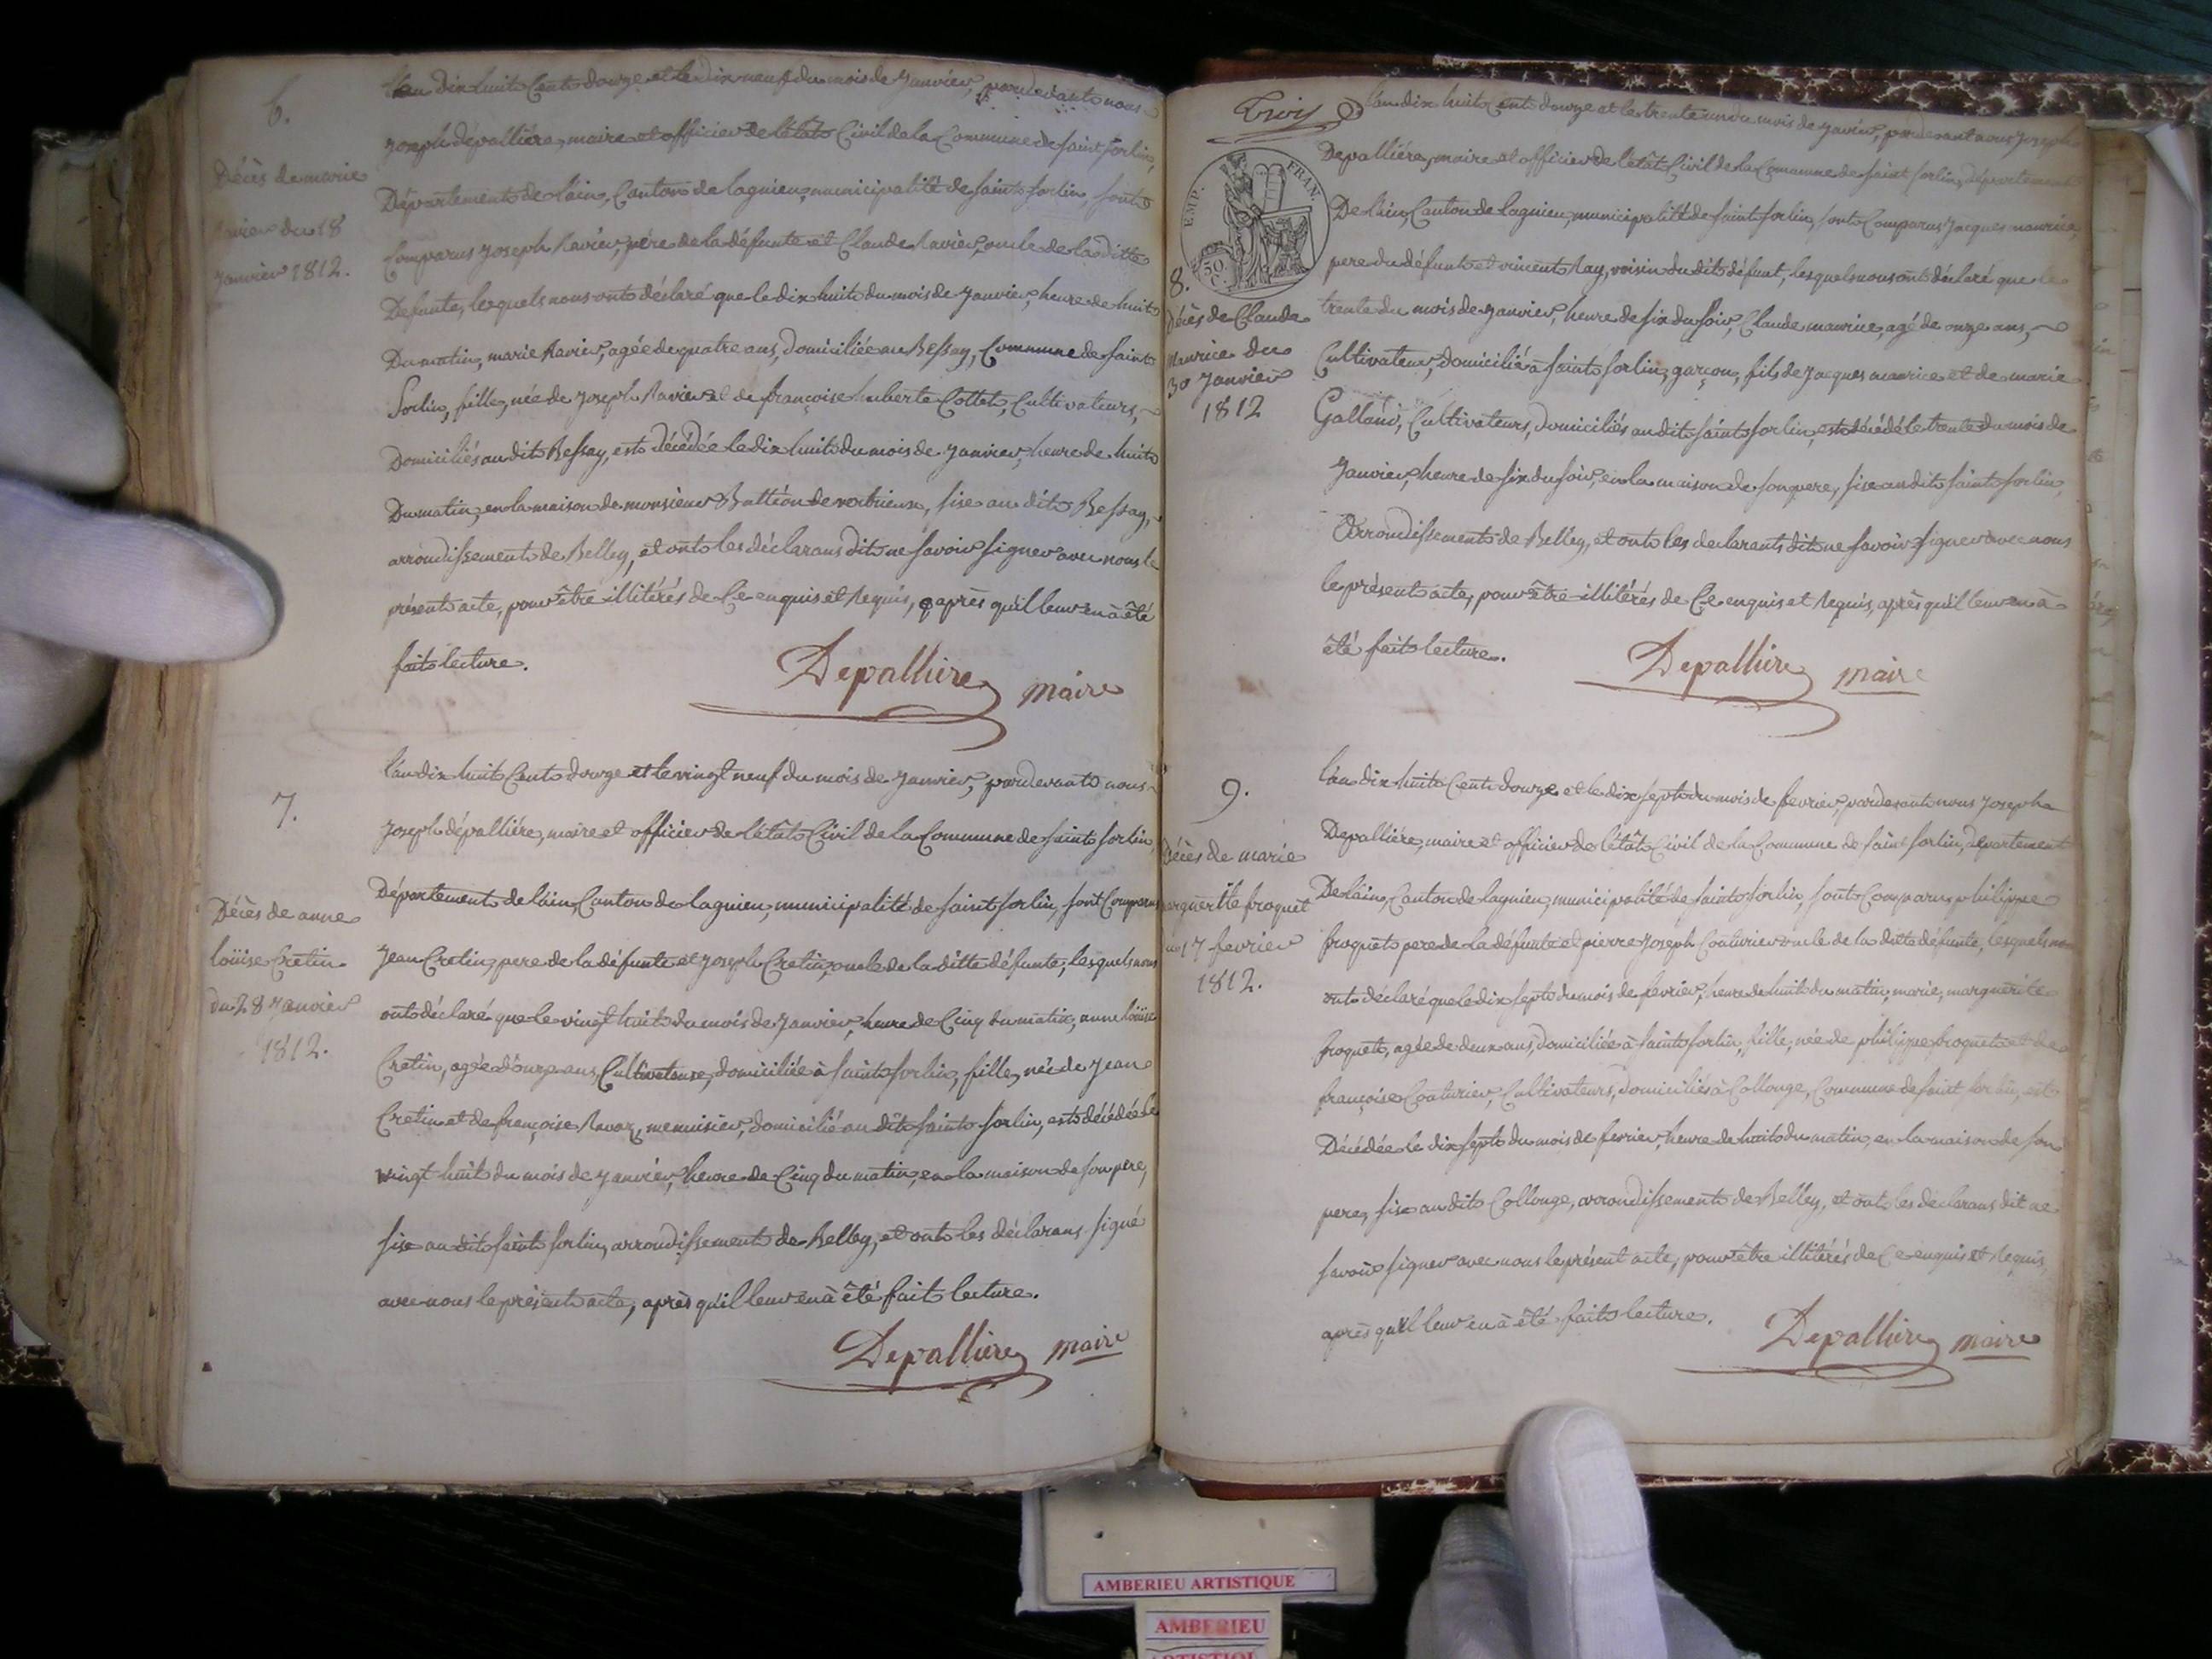 6.
Décès de marie
Ravier du 18
Janvier 1812.
L'an dix huit Cent douze et le dix neuf du mois de Janvier, pardevant nous
Joseph dépalliére, maire et officier de l'êtât Civil de la Commune de Saint Sorlin,
Département de l'ain, Canton de lagnieu, municipalité de Saint Sorlin, sont
Comparus Joseph Ravier, pére de la défunte et Claude Ravier, oncle de la ditte
Defunte, lesquels nous ont déclaré que le dix huit du mois de Janvier, heure de huit
Du matin, marie Ravier, agée de quatre ans, domiciliée au Bessay, Commune de Saint
Sorlin, fille, née de Joseph Ravier et de françoise huberte Cottet, Cultivateurs,
Domiciliés au dit Bessay, est décédée le dix huit du mois de Janvier, heure de huit
Du matin, en la maison de monsieur sise au dit Bessay,
arrondissement de Belley, et ont les déclarans dit ne savoir signer avec nous le
présent acte, pour être illitérés de Ce enquis et Requis, après qu'il leur en à êté
fait lecture.
Depalliere maire
7.
Décès de anne
loüise Cretin
du 28 Janvier
1812.
l'an dix huit Cent douze et le vingt neuf du mois de Janvier, pardevant nous
Joseph dépalliére, maire et officier de l'êtât Civil de la Commune de Saint Sorlin,
Département de l'ain, Canton de lagnieu, municipalité de Saint Sorlin, sont Comparus
Jean Cretin, pere de la défunte et Joseph Cretin, oncle de la ditte défunte, lesquels nous
ont déclaré que le vingt huit du mois de Janvier, heure de Cinq du matin, anne loüise
Cretin, agée d'onze ans, Cultivateuse, domiciliée à Saint Sorlin, fille, née de Jean
Cretin et de françoise Ravaz, menuisier, domicilié au dit Saint Sorlin, est décédée le
vingt huit du mois de Janvier, heure de Cinq du matin, en la maison de son pere,
sise au dit Saint Sorlin, arrondissement de Belley, et ont les déclarans signé
avec nous le présent acte, après qu'il leur en à êté fait lecture.
Depalliere maire
Trois
EMP. FRAN.
50. C.
8.
Décès de Claude
Maurice du
30 Janvier
1812
l'an dix huit cent douze et le trente un du mois de Janvier, pardevant nous Joseph
Depalliére, maire et officier de l'êtât Civil de la Commune de Saint Sorlin, Département
De l'ain, Canton de lagnieu, municipalité de Saint Sorlin, sont Comparus Jacques maurice,
pere du défunt et vincent Ray, voisin du dit défunt, lesquels nous ont déclaré que le
trente du mois de Janvier, heure de six du soir, Claude maurice, agé de onze ans,
Cultivateur, domicilié à Saint Sorlin, garçon, fils de Jacques maurice et de marie
Galland, Cultivateurs, domiciliés au dit Saint Sorlin, est décédé le trente du mois de
Janvier, heure de six du soir, en la maison de son pere, sise au dit Saint Sorlin,
Arrondissement de Belley, et ont les declarants dit ne savoir signer avec nous
le présent acte, pour être illitérés de Ce enquis et Requis, après qu'il leur en à
êté fait lecture.
Depalliere maire
9.
Décès de marie
marguerite froquet
du 17 fevrier
1812.
l'an dix huit Cent douze et le dix sept du mois de fevrier, pardevant nous Joseph
Depalliére, maire et officier de l'êtât Civil de la Commune de Saint Sorlin, département
De l'ain, Canton de lagnieu, municipalité de Saint Sorlin, sont Comparus philippe
froquet pere de la défunte et pierre Joseph Couturier oncle de la ditte défunte, lesquels nous
ont déclaré que le dix sept du mois de fevrier, heure de huit du matin, marie, marguerite
froquet, agée de deux ans, domiciliée à Saint Sorlin, fille, née de philippe froquet et de
françoise Couturier, Cultivateurs, domiciliés à Collonge, Commune de Saint Sorlin, est
Décédée le dix sept du mois de fevrier, heure de huit du matin, en la maison de son
pere, sise au dit Collonge, arrondissement de Belley, et ont les déclarans dit ne
savoir signer avec nous le présent acte, pour être illitérés de Ce enquis et Requis,
après qu'il leur en à êté fait lecture.
Depalliere maire
AMBERIEU ARTISTIQUE
AMBERIEU
ARTISTIQUE